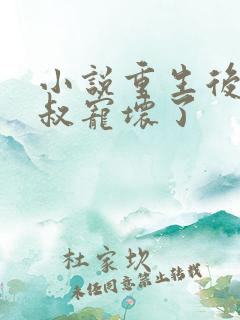 小說重生後
叔寵壞了
杜家坎
未經同意禁止轉載